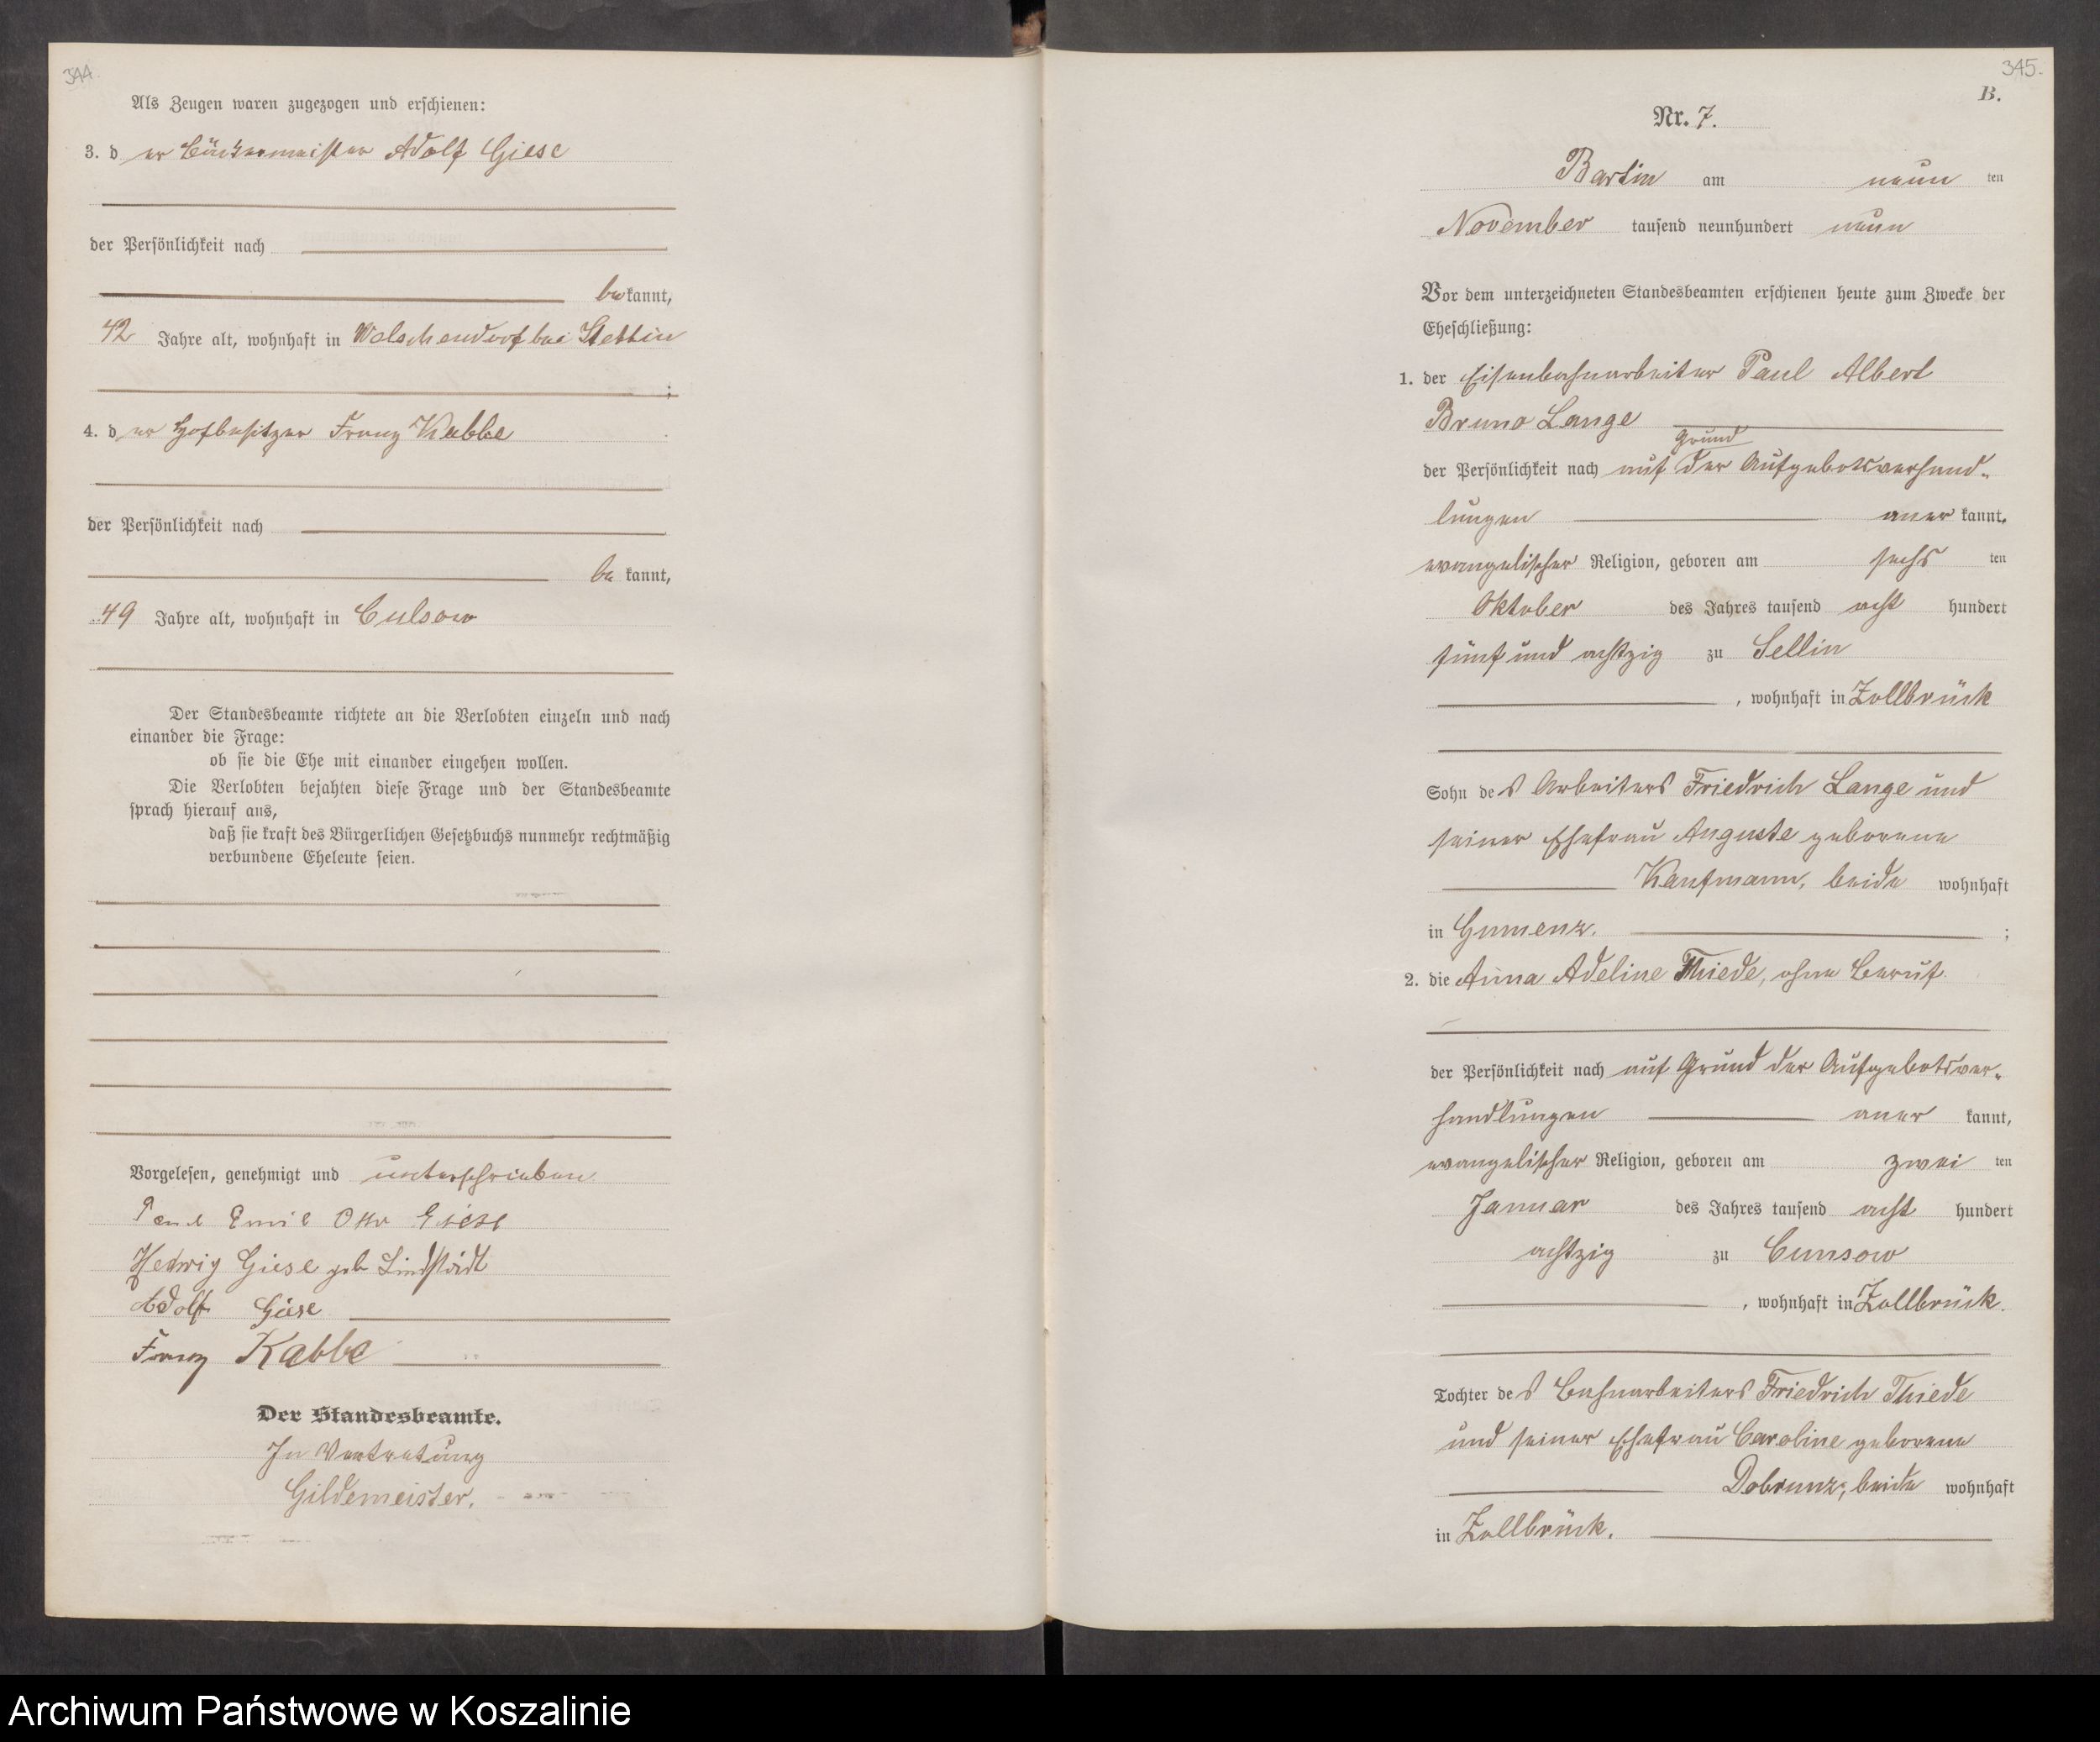 344.
Als Zeugen waren zugezogen und erschienen:
3. der Bäckermeister Adolf Giese
der Persönlichkeit nach
bekannt,
42 Jahre alt, wohnhaft in Wolschendorf bei Stettin
;
4. der Hofbesitzer Franz Kabbe
der Persönlichkeit nach
be kannt,
49 Jahre alt, wohnhaft in Culsow
Der Standesbeamte richtete an die Verlobten einzeln und nach
einander die Frage:
ob sie die Ehe mit einander eingehen wollen.
Die Verlobten bejahten diese Frage und der Standesbeamte
sprach hierauf aus,
daß sie kraft des Bürgerlichen Gesetzbuchs nunmehr rechtmäßig
verbundene Eheleute seien.
Vorgelesen, genehmigt und unterschrieben
Paul Emil Otto Giese
Hedwig Giese geb Lindstädt
Adolf Giese
Franz Kabbe
Der Standesbeamte.
In Vertretung
Gildemeister.
345.
B.
Nr. 7.
Bartin am neun ten
November tausend neunhundert neun
Vor dem unterzeichneten Standesbeamten erschienen heute zum Zwecke der
Eheschließung:
1. der Eisenbahnarbeiter Paul Albert
Bruno Lange
Grund
der Persönlichkeit nach auf der Aufgebotsverhand-
lungen aner kannt,
evangelischer Religion, geboren am sechs ten
Oktober des Jahres tausend acht hundert
fünf und achtzig zu Sellin
, wohnhaft in Zollbrück
Sohn des Arbeiters Friedrich Lange und
seiner Ehefrau Auguste geborene
Kaufmann, beide wohnhaft
in Gumenz. ;
2. die Anna Adeline Thiede, ohne Beruf
der Persönlichkeit nach auf Grund der Aufgebotsver-
handlungen aner kannt,
evangelischer Religion, geboren am zwei ten
Januar des Jahres tausend acht hundert
achtzig zu Cunsow
, wohnhaft in Zollbrück.
Tochter des Bahnarbeiters Friedrich Thiede
und seiner Ehefrau Caroline geborene
Dobrunz, beide wohnhaft
in Zollbrück.
Archiwum Państwowe w Koszalinie